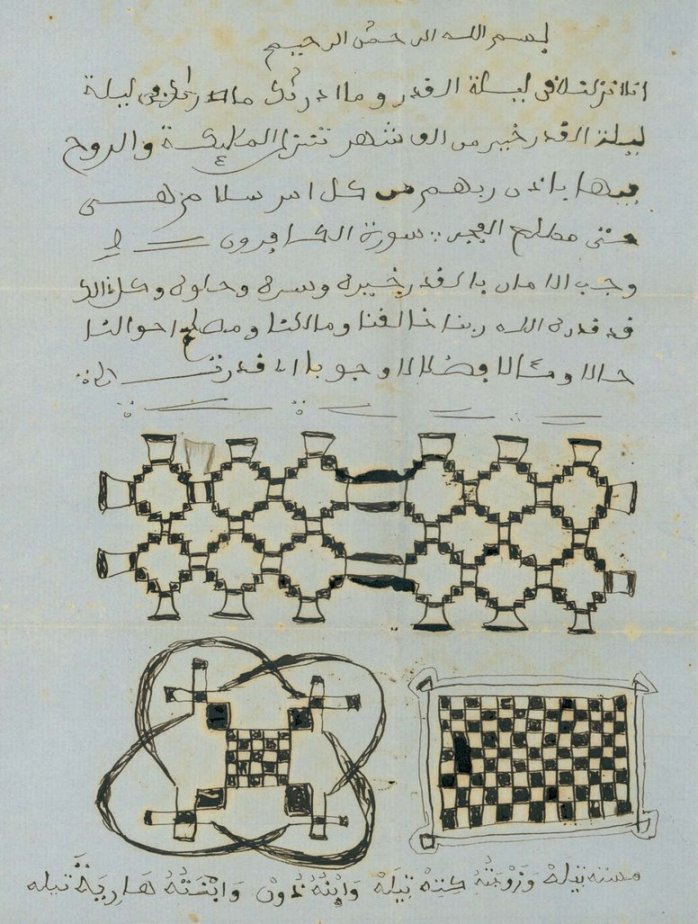 بسم الله الرحمن الرحيم
انا نزلنه فى ليلة القدر وما ادرىك ما ليلة
ليلة القدر خير من الف شهر تنزل المليكة والروح
فيها باذن ربهم من كل امر سلام هي
حتى مطلع الفجر سورة الكافرون
وجب الامان بالقدر خيره وسره وحلوه وكل
قد قدره الله ربنا خالقنا ومالكنا ومصلح احوالنا
حالا ومئالا فضلا لا وجوبا
تيله وَزْوْجَتُهُ كِتِهْ تِيلَهْ وَابْنُهُ دُونْ وَابْنَتُهُ هَارِيَةَ تيله